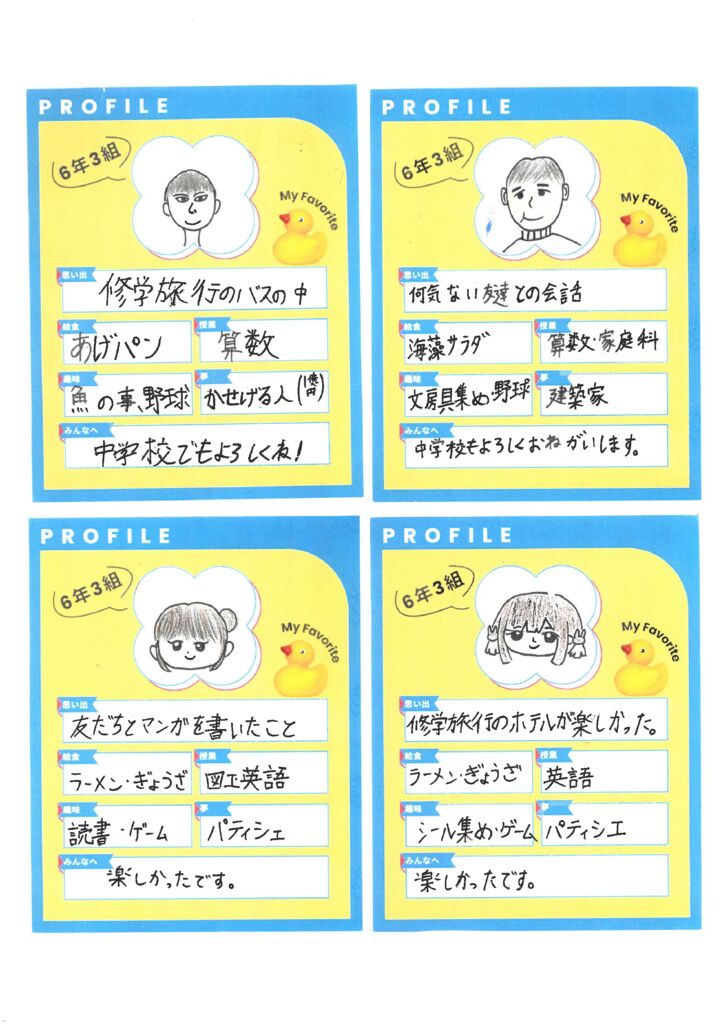 PROFILE
6年3組
My Favorite
思い出
修学旅行のバスの中
給食
あげパン
授業
算数
趣味
魚の事、野球
夢
かせげる人(1億円)
みんなへ
中学校でもよろしくね!
PROFILE
6年3組
My Favorite
思い出
何気ない友達との会話
給食
海藻サラダ
授業
算数・家庭科
趣味
文房具集め野球
夢
建築家
みんなへ
中学校もよろしくおねがいします。
PROFILE
6年3組
My Favorite
思い出
友だちとマンガを書いたこと
給食
ラーメン・ぎょうざ
授業
図工英語
趣味
読書・ゲーム
夢
パティシェ
みんなへ
楽しかったです。
PROFILE
6年3組
My Favorite
思い出
修学旅行のホテルが楽しかった。
給食
ラーメン・ぎょうざ
授業
英語
趣味
シール集め・ゲーム
夢
パティシエ
みんなへ
楽しかったです。